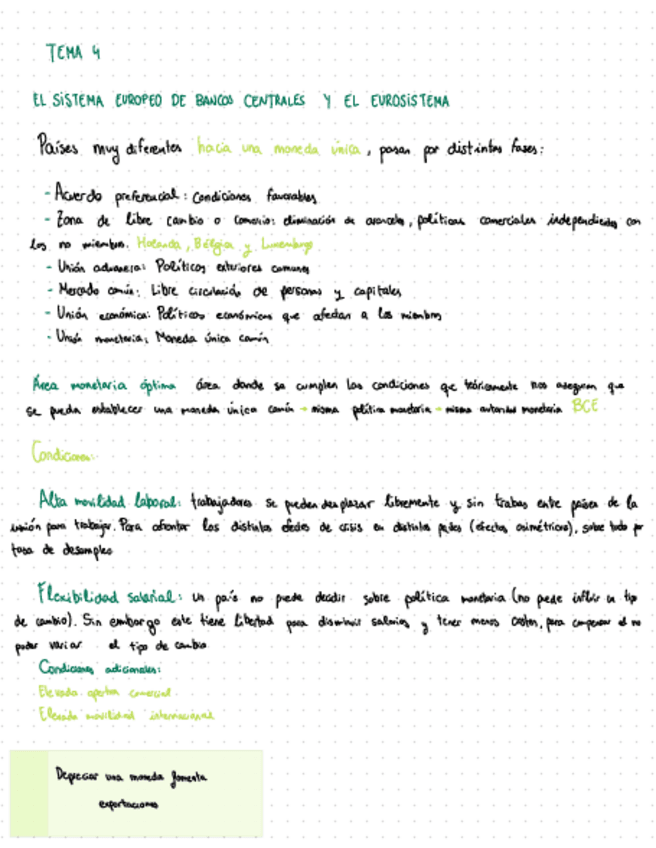 TEMA 4
EL SISTEMA EUROPEO DE BANCOS CENTRALES Y EL EUROSISTEMA
Países muy diferentes hacia una moneda única, pasan por distintas fases:
- Acuerdo preferencial: condiciones favorables
- Zona de libre cambio o comercio: eliminación de aranceles, políticas comerciales independientes con
los no miembros. Holanda, Bélgica y Luxemburgo
- Unión aduanera: Políticas exteriores comunes
- Mercado común: Libre circulación de personas y capitales
- Unión económica: Políticas económicas que afectan a los miembros
- Unión monetaria: Moneda única común
Área monetaria óptima área donde se cumplen las condiciones que teóricamente nos aseguran que
se pueda establecer una moneda única común → misma política monetaria → misma autoridad monetaria BCE
Condiciones:
Alta movilidad laboral: trabajadores se pueden desplazar libremente y sin trabas entre países de la
unión para trabajar. Para afrontar los distintos efectos de crisis en distintos países (efectos asimétricos), sobre todo por
tasa de desempleo
Flexibilidad salarial: un país no puede decidir sobre política monetaria (no puede influir en tipo
de cambio). Sin embargo este tiene libertad para disminuir salarios y tener menos costes, para compensar el no
poder variar el tipo de cambio
Condiciones adicionales:
Elevada apertura comercial
Elevada movilidad internacional
Depreciar una moneda fomenta
exportaciones